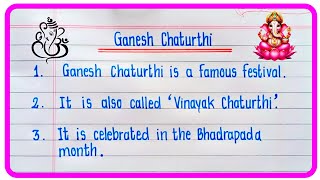 Ganesh Chaturthi
1. Ganesh Chaturthi is a famous festival.
2. It is also called 'Vinayak Chaturthi'.
3. It is celebrated in the Bhadrapada
month.